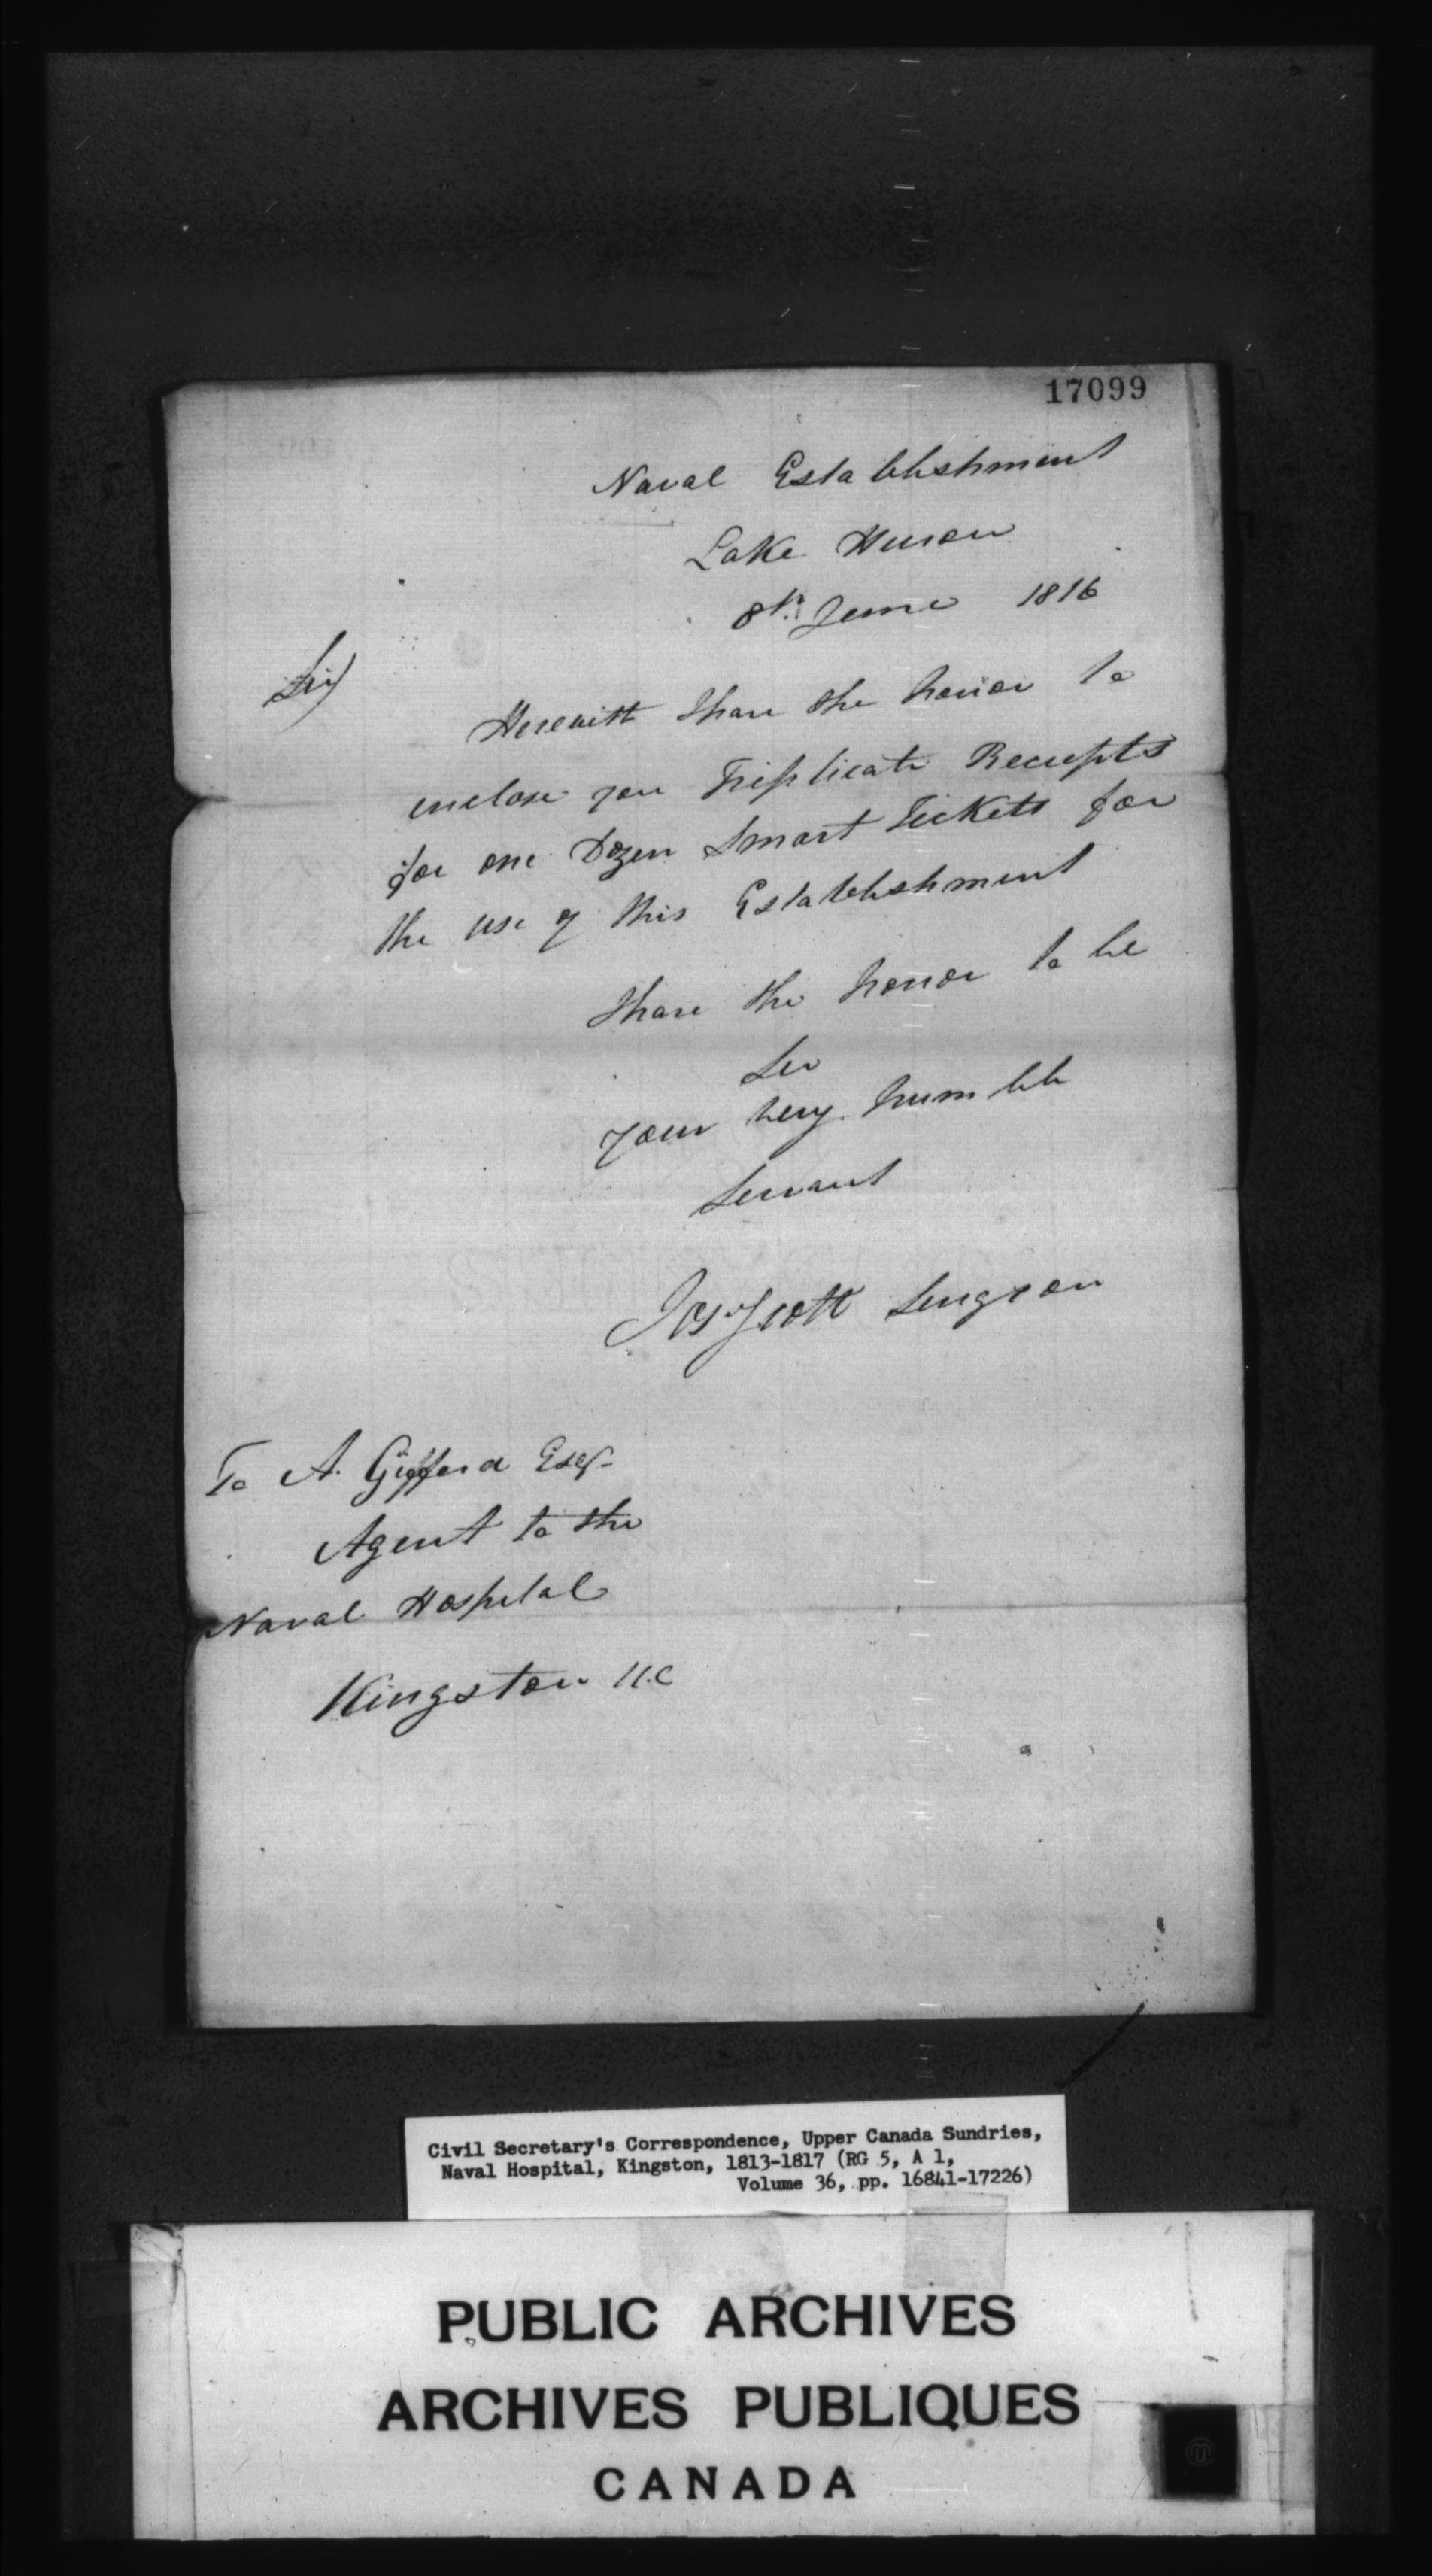 17099
Naval Establishment
Lake Huron
8th June 1816
Sir
Herewith I have the honor to
enclose you Triplicate Receipts
for one Dozen Smart Tickets for
the use of this Establishment
I have the honor to be
Sir
your very humble
Servant
Jas Scott Surgeon
To A. Gifford Esqr
Agent to the
Naval Hospital
Kingston U.C
Civil Secretary's Correspondence, Upper Canada Sundries,
Naval Hospital, Kingston, 1813-1817 (RG 5, A 1,
Volume 36, pp. 16841-17226)
PUBLIC ARCHIVES
ARCHIVES PUBLIQUES
CANADA